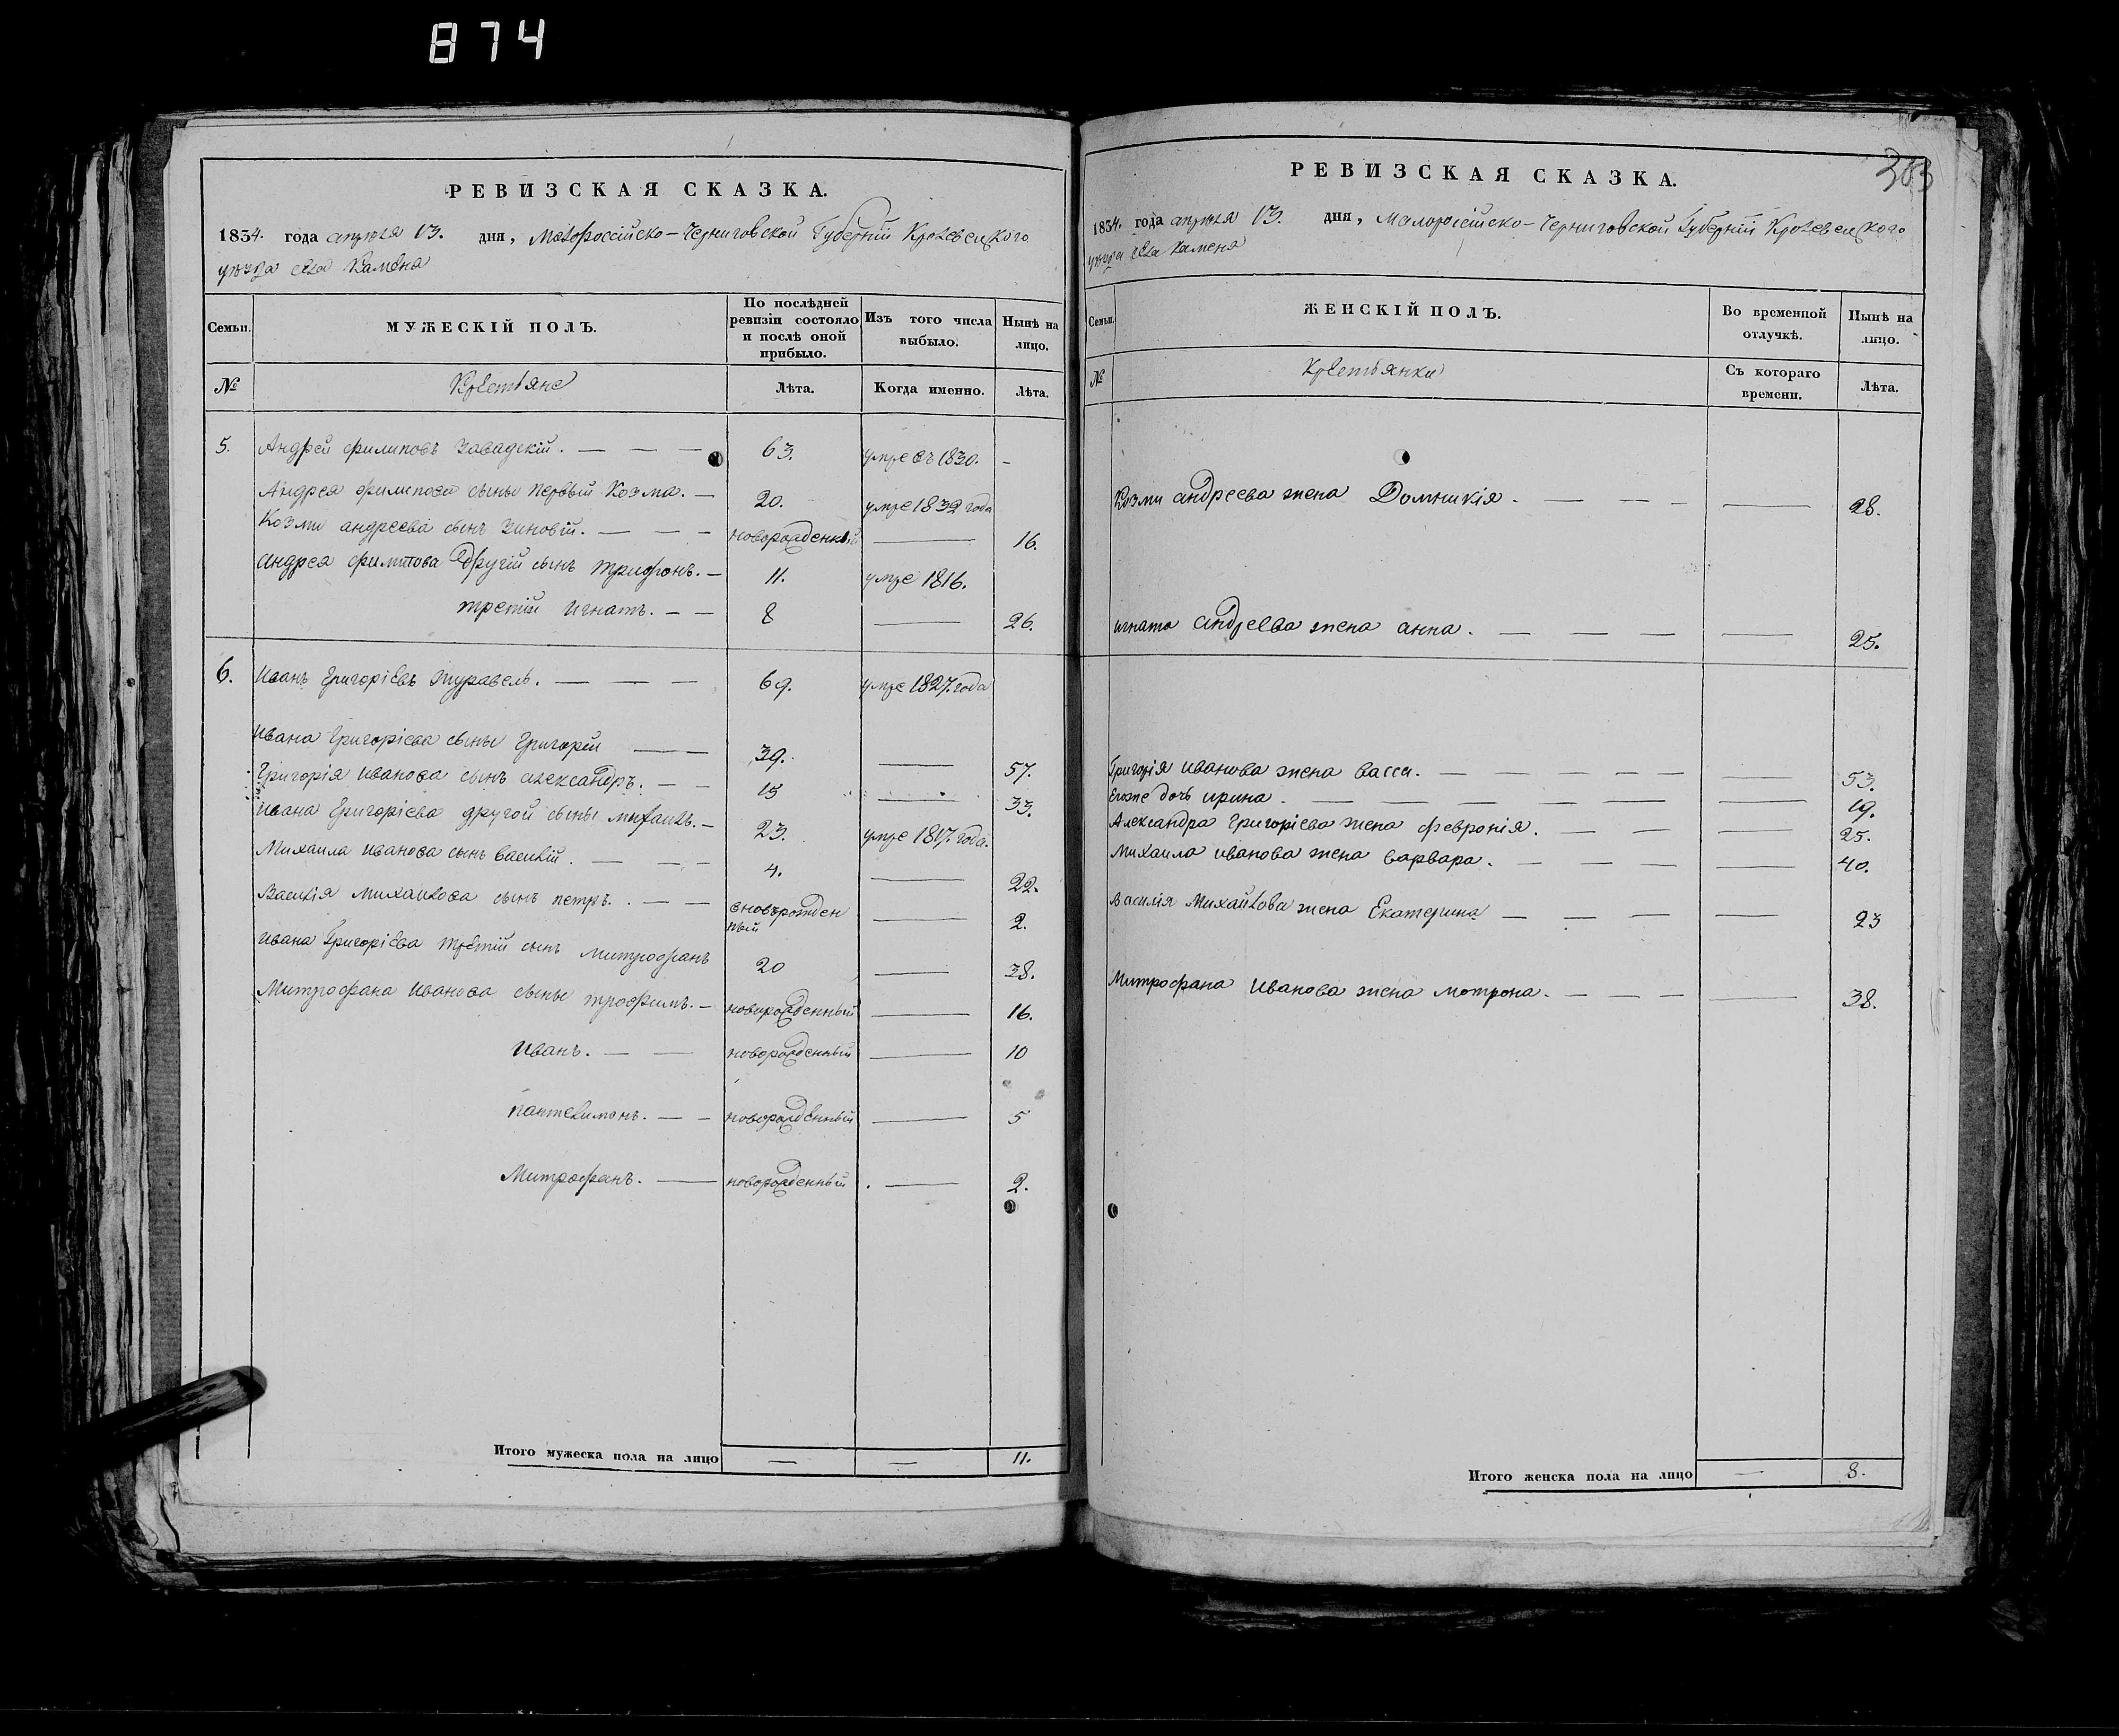 874
РЕВИЗСКАЯ СКАЗКА.
1834. года апрѣля 13. дня, Малороссійско-Черниговской Губерніи Кролевецкого
уѣзда села Каменя
Семьи. МУЖЕСКІЙ ПОЛЪ. По послѣдней ревизіи состояло и послѣ оной прибыло. Изъ того числа выбыло. Нынѣ на лицо.
№ Крестьяне Лѣта. Когда именно. Лѣта.
5. Андрей филиповъ Завадскій. — — — 63. умре въ 1830. -
Андрея филипова сыны первый Козма. — 20. умре 1832 года
Козми андреева сынъ Зиновій. — — — новорожденный — 16.
андрея филипова другій сынъ трифонъ. — 11. умре 1816.
третій игнатъ. — — 8 — 26.
6. Иванъ Григоріевъ журавель. — — — 69. умре 1827. года
ивана Григоріева сыны Григорій — 39. — 57.
Григорія иванова сынъ александръ. — — 15 — 33.
ивана Григоріева другой сынъ михаилъ. — 23. умре 1817. года.
Михаила иванова сынъ василій. — — — 4. — 22.
Василія михаилова сынъ петръ. — — вновьрожден
ный — 2.
ивана Григоріева третій сынъ митрофанъ 20 — 38.
Митрофана иванова сыны трофимъ. — новорожденный — 16.
Иванъ. — — новорожденный — 10
пантелимонъ. — — новорожденный — 5
Митрофанъ. — новорожденный — 2.
Итого мужеска пола на лицо — — 11.
303
РЕВИЗСКАЯ СКАЗКА.
1834. года апрѣля 13. дня, Малоросійско-Черниговской Губерніи Кролевецкого
уѣзда села Каменя
Семьи. ЖЕНСКІЙ ПОЛЪ. Во временной отлучкѣ. Нынѣ на лицо.
№ Крестьянки Съ котораго времени. Лѣта.
Козми андреева жена Домникія. — — — — 28.
игната андреева жена анна. — — — — — 25.
Григорія иванова жена васса. — — — — — 53.
Егоже дочь ирина. — — — — — — 19.
Александра Григоріева жена февронія. — — — — 25.
Михаила иванова жена варвара. — — — — — 40.
Василія Михайлова жена Екатерина — — — — — 23
Митрофана иванова жена мотрона. — — — — 38.
Итого женска пола на лицо — 8.